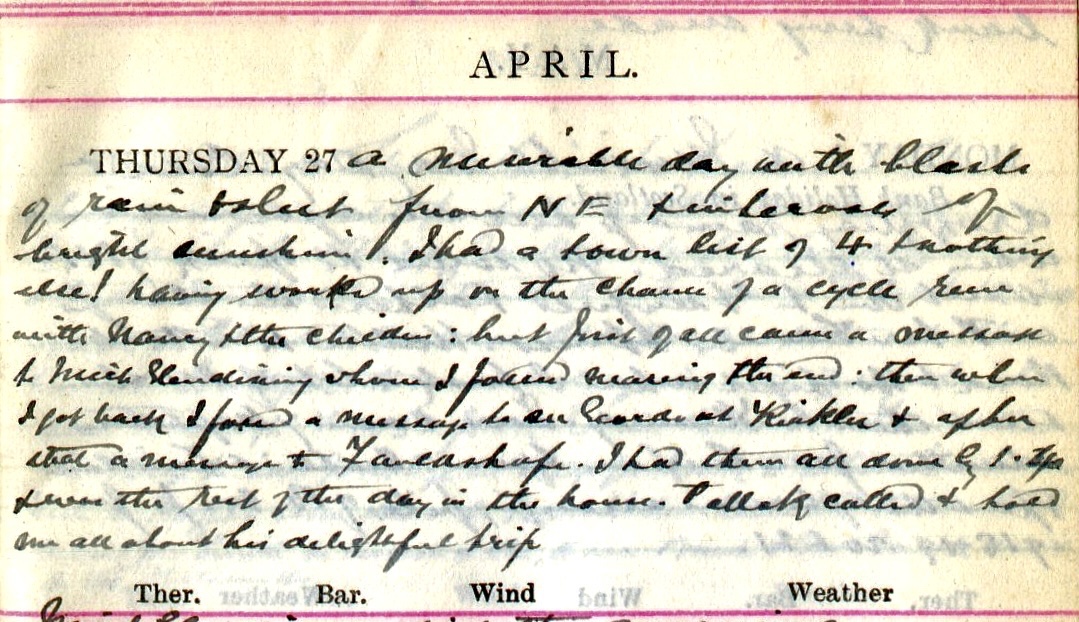 APRIL.
THURSDAY 27 a miserable day with blasts
of rain & sleet from NE & intervals of
bright sunshine. I had a town list of 4 & nothing
else! having worked up on the chance of a cycle run
with Nancy & the children: but first of all came a message
to Glendinning whom I found nearing the end: then when
I got back I found a message to see at & after
that a message to Fauldshope. I had them all done by
& was the rest of the day in the house. Pollok called & told
me all about his delightful trip
Ther. Bar. Wind Weather